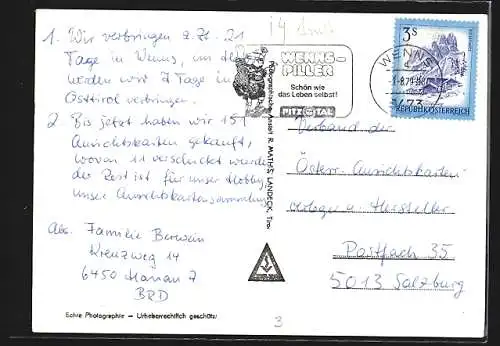 1. Wir verbringen z. Zt. 21
Tage in Wenns, an den
werden wir 7 Tage in
Osttirol verbringen.
2 Bis jetzt haben wir 151
Ansichtskarten gekauft,
wovon 11 verschickt wurden
der Rest ist für unser Hobby,
unser Ansichtskartensammlung
Abs. Familie
Kreuzweg 14
6450 Hanau 7
BRD
Echte Photographie – Urheberrechtlich geschützt
Photographische Anstalt R. MATHIS, LANDECK, Tirol
14
WENNS-
PILLER
Schön wie
das Leben selbst!
PITZTAL
WENNS
-8.79
6473
3S
REPUBLIK ÖSTERREICH
Verband der
Österr. Ansichtskarten-
verleger u. Hersteller
Postfach 35
5013 Salzburg
3